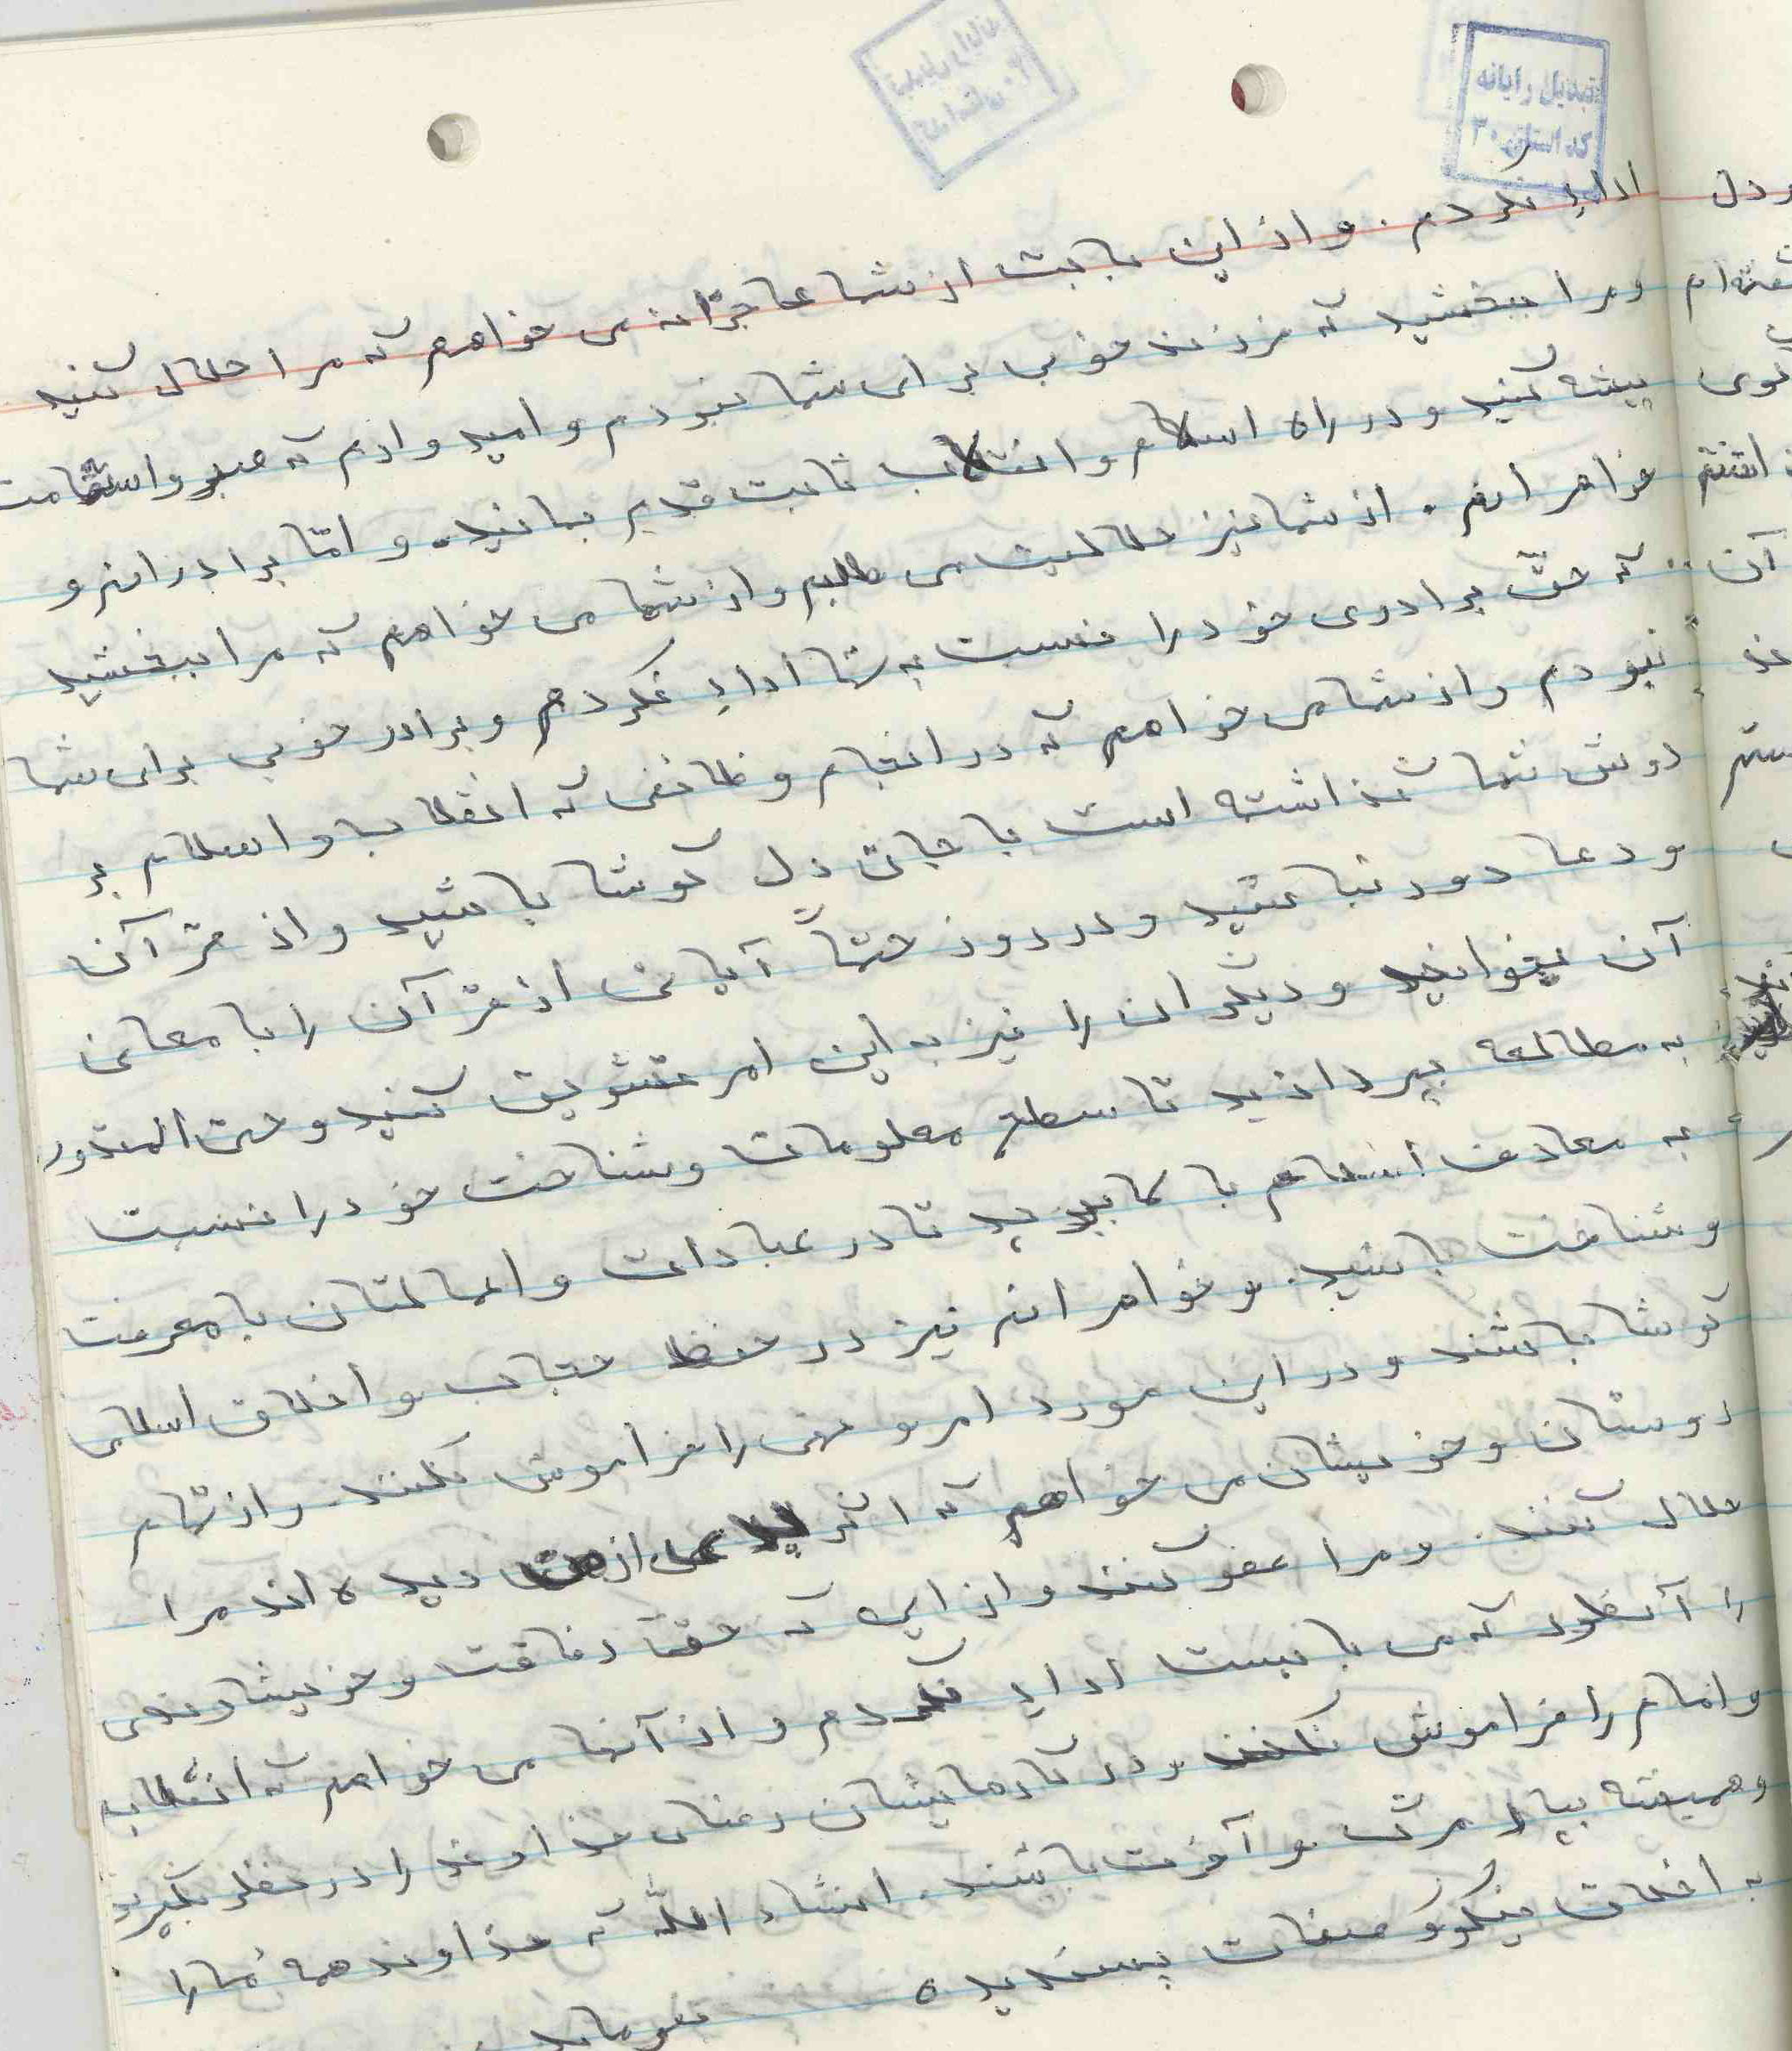 تبدیل رایانه
کد استان ۳۰
اداء نکردم. و از این بابت از شما عاجزانه می خواهم که مرا حلال کنید
و مرا ببخشید که فرزند خوبی برای شما نبودم و امیدوارم که صبر و استقامت
پیشه کنید و در راه اسلام و انقلاب ثابت قدم بمانید. و امّا برادرانم و
خواهرانم. از شما نیز حلالیت می طلبم و از شما می خواهم که مرا ببخشید
که حقّ برادری خود را نسبت به شما اداء نکردم و برادر خوبی برای شما
نبودم و از شما می خواهم که در انجام وظائفی که انقلاب و اسلام بر
دوش شما گذاشته است با جان دل کوشا باشید و از قرآن
و دعا دور نباشید و در روز حتماً آیاتی از قرآن را با معانی
آن بخوانید و دیگران را نیز به این امر تشویق کنید و حتی المقدور
به مطالعه بپردازید تا سطح معلومات و شناخت خود را نسبت
به معارف اسلام بالا ببرید تا در عبادات و اعمالتان با معرفت
و شناخت باشید. و خواهرانم نیز در حفظ حجاب و اخلاق اسلامی
کوشا باشند و در این مورد امر و نهی را فراموش نکنند. و از تمام
دوستان و خویشان می خواهم که اگر از من دیده اند مرا
حلال کنند. و مرا عفو کنند و از این که حق رفاقت و خویشاوندی
را آنطور که می بایست اداء نکردم و از آنها می خواهم که انقلاب
و امام را فراموش نکنند و در کارهایشان رضای خداوند را در نظر بگیرند
و همیشه بیاد مرگ و آخرت باشند. انشاء اللّه که خداوند همه ما را
به اخلاق نیکو و صفات پسندیده